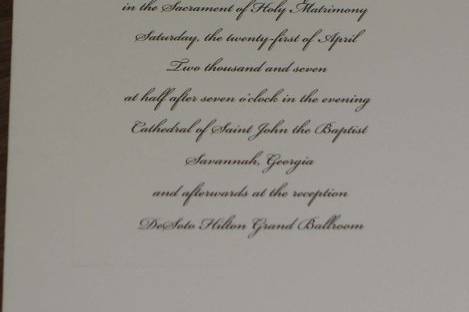 in the Sacrament of Holy Matrimony
Saturday, the twenty-first of April
Two thousand and seven
at half after seven o'clock in the evening
Cathedral of Saint John the Baptist
Savannah, Georgia
and afterwards at the reception
DeSoto Hilton Grand Ballroom